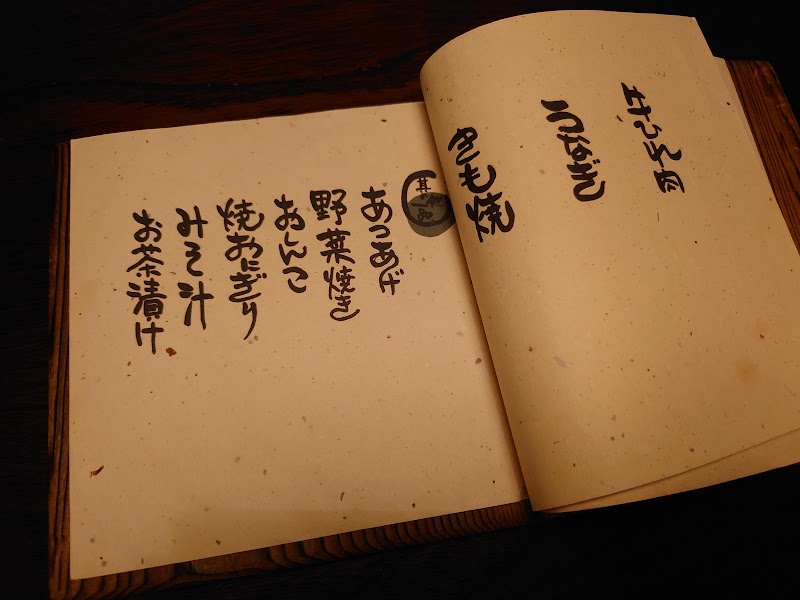 牛ひれ肉
うなぎ
きも焼
其の他
あつあげ
野菜焼き
おしんこ
焼おにぎり
みそ汁
お茶漬け